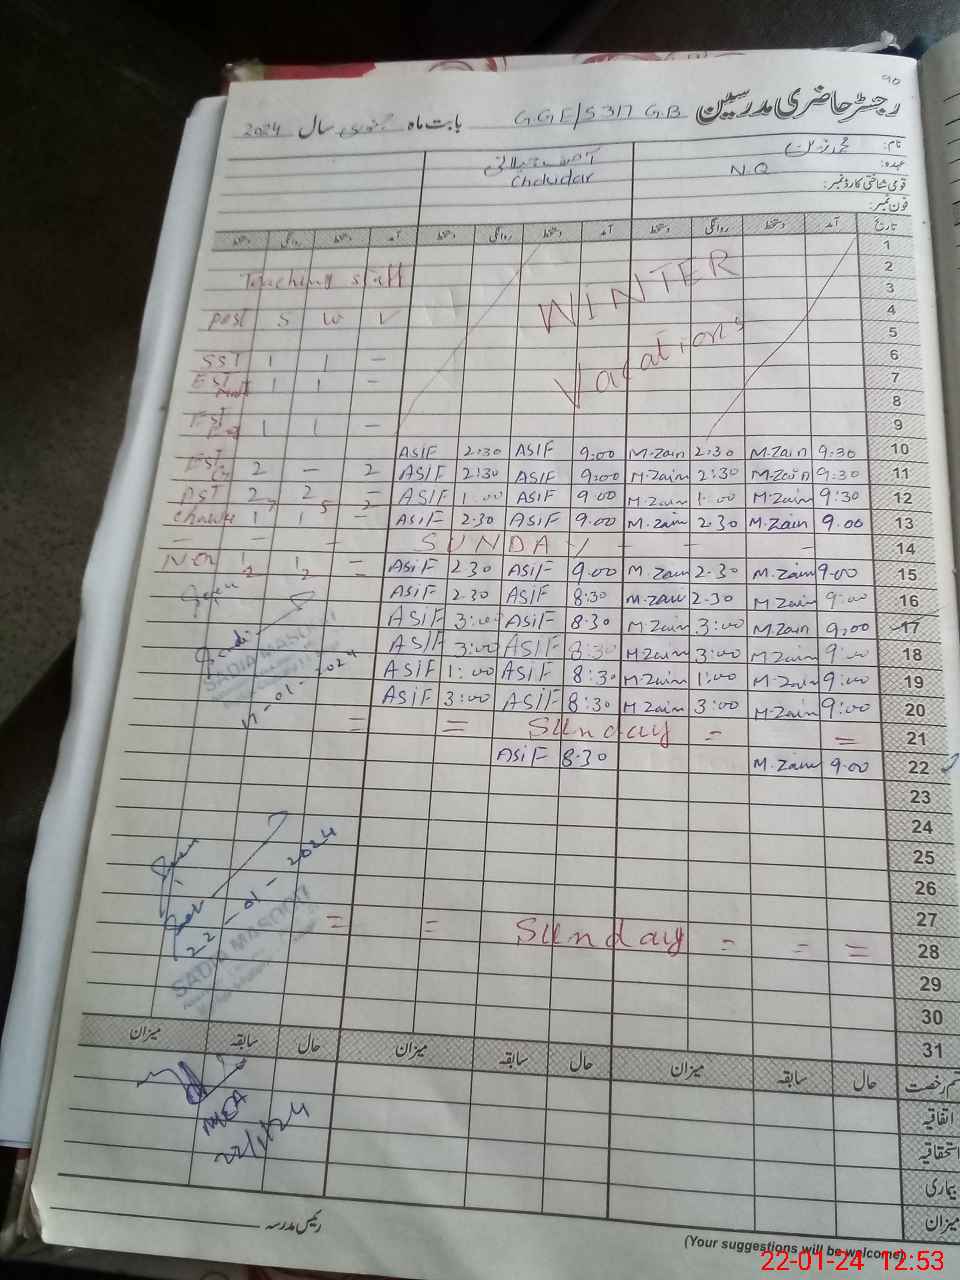 ۹۰
رجسٹر حاضری مدرسین GGE/S 317 GB بابت ماہ جنوری سال 2024
نام:
عہدہ: N.Q Chokidar
قومی شناختی کارڈ نمبر:
فون نمبر:
تاریخ آمد دستخط روانگی دستخط آمد دستخط روانگی دستخط آمد دستخط روانگی دستخط
1
2 WINTER
Teaching staff
3
4
Post S W V
5 Vacations
6
SST 1 1 -
7
EST 1 1 -
8
9
EST 1 1 -
10 9:30 M.Zain 2:30 M.Zain 9:00 ASIF 2:30 ASIF
11 9:30 M.Zain 2:30 M.Zain 9:00 ASIF 2:30 ASIF
EST 2 - 2
12 9:30 M.Zain 1:00 M.Zain 9:00 ASIF 1:00 ASIF
PST 2 2 -
13 9.00 M.Zain 2.30 M.Zain 9.00 ASIF 2.30 ASIF
14 - - - SUNDAY - - -
15 9.00 M.Zain 2.30 M.Zain 9.00 ASIF 2.30 ASiF
16 9:00 M.Zain 2.30 M.Zain 8:30 ASIF 2.30 ASIF
17 9:00 M.Zain 3:00 M.Zain 8:30 ASIF 3:00 ASIF
18 9:00 M.Zain 3:00 M.Zain 8:30 ASIF 3:00 ASIF
SADIA MASOOD
17-01-2024
19 9:00 M.Zain 1:00 M.Zain 8:30 ASIF 1:00 ASIF
20 9:00 M.Zain 3:00 M.Zain 8:30 ASIF 3:00 ASIF
21 = - Sunday = =
22 9.00 M.Zain 8.30 ASiF
23
24
25
26
27
28 = = - Sunday = =
22-01-2024
SADIA MASOOD
29
30
31
قسم رخصت حال سابقہ میزان حال سابقہ میزان حال سابقہ میزان
اتفاقیہ
استحقاقیہ
22/1/24
بیماری
میزان
رئیس مدرسہ
(Your suggestions will be welcome)
22-01-24 12:53